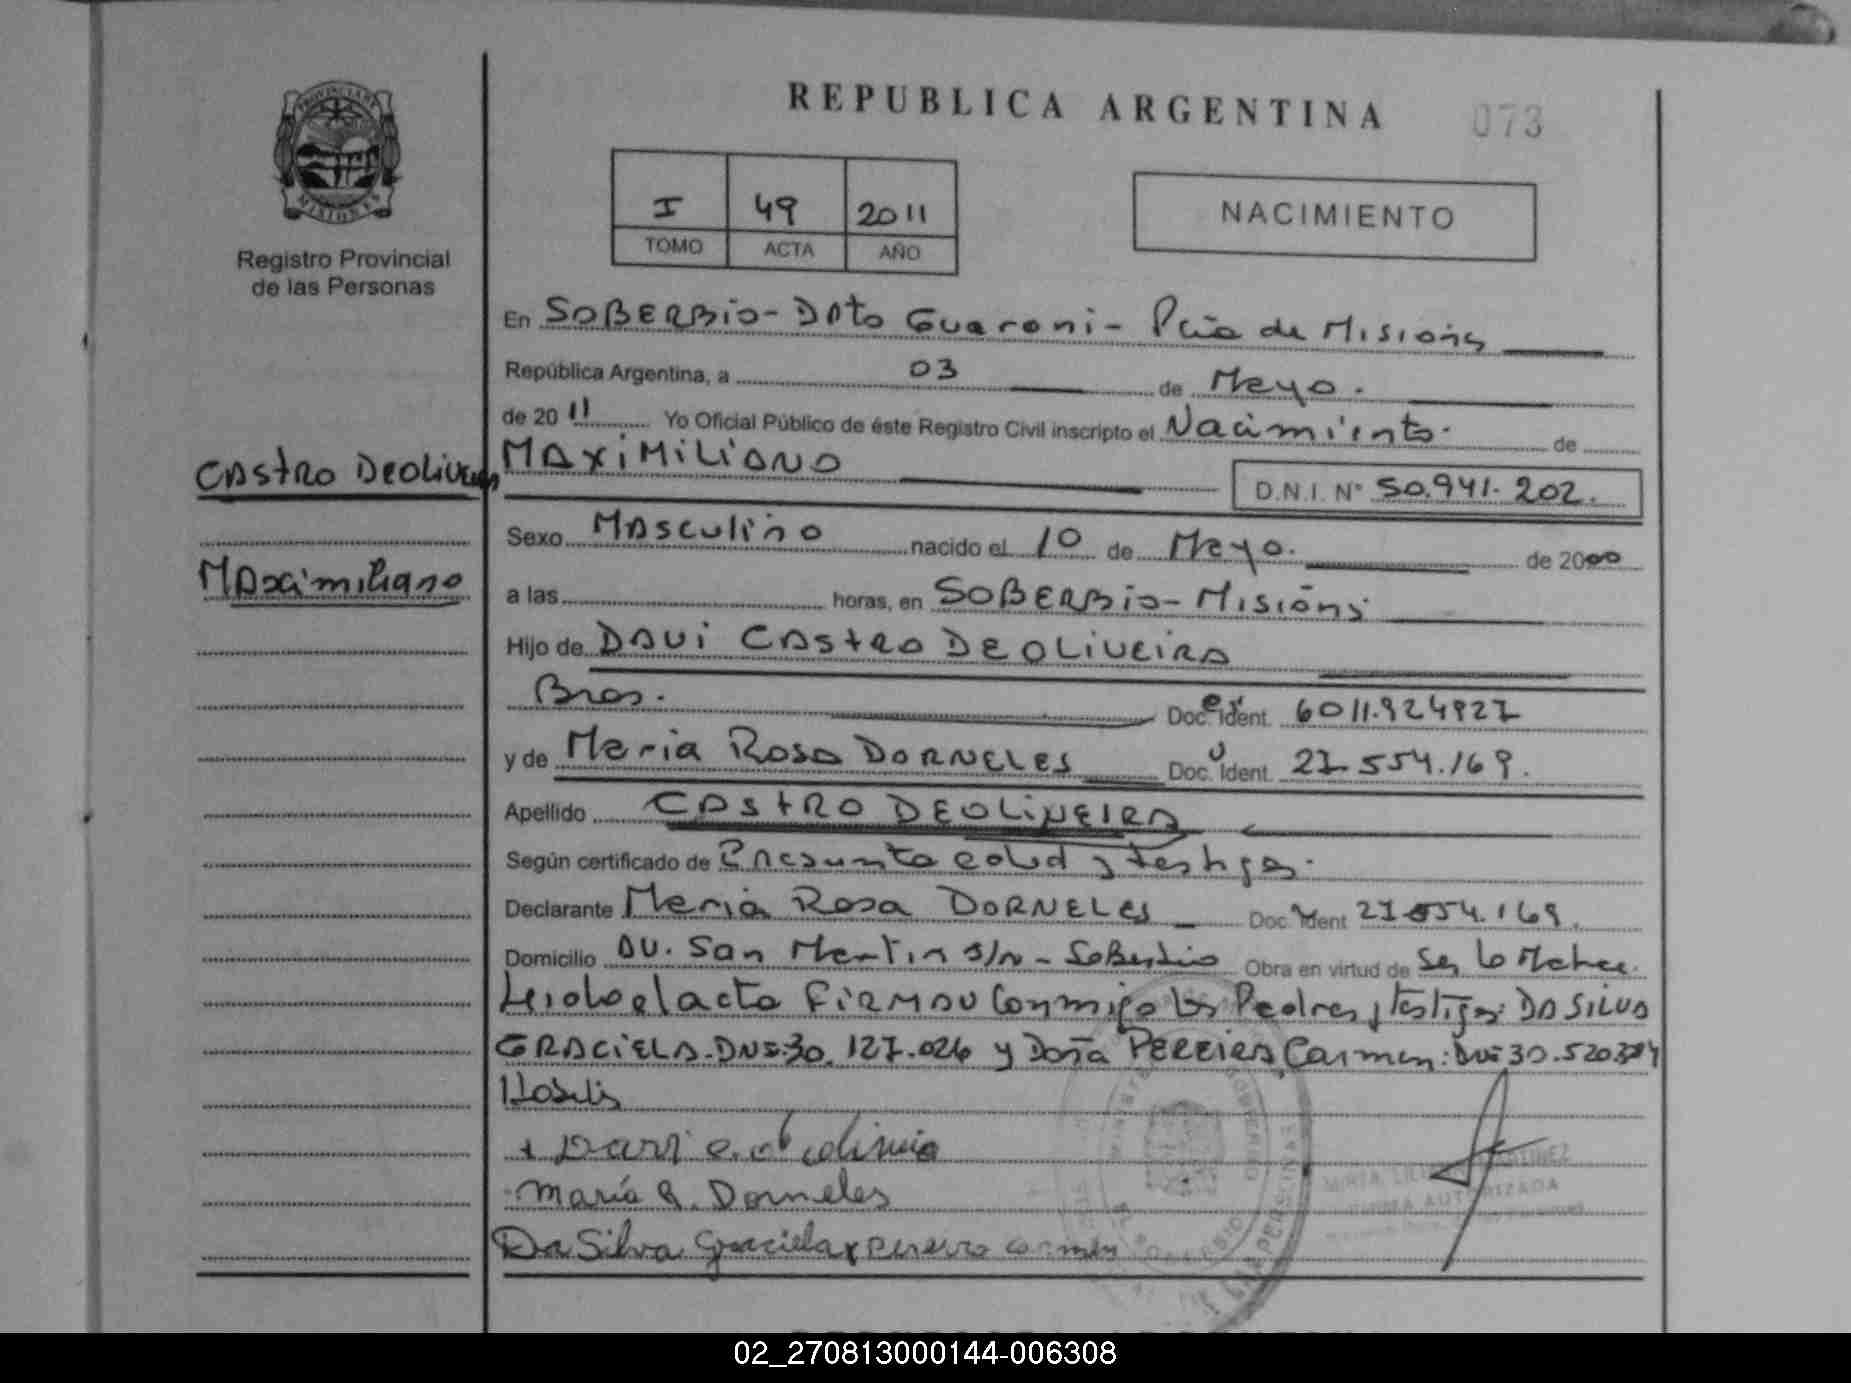 REPUBLICA ARGENTINA
073
PROVINCIA DE
MISIONES
Registro Provincial
de las Personas
I 49 2011
TOMO ACTA AÑO
NACIMIENTO
En SOBERBio - Dpto Guarani - Pcia de Misiones
República Argentina, a 03 de Mayo.
de 2011 Yo Oficial Público de éste Registro Civil inscripto el Nacimiento. de
CAstro Deoliveira
MAXiMiLiANO
D.N.I. N° 50.941.202.
Sexo MAsculino nacido el 10 de Mayo. de 2000
MAximiliano
a las horas, en SOBERBio - Misiones
Hijo de DAVi CAStRO DEOLiVEiRA
Bras. Doc. Ident. 6011.924927
y de Maria Rosa DORNELES Doc. Ident. 27.554.169.
Apellido CAStRO DEOLiVEiRA
Según certificado de Presunta edad y testigos.
Declarante Maria Rosa DORNELES Doc. Ident 27.554.169.
Domicilio AV. San Martin s/n - Soberbio Obra en virtud de Ser la Madre.
Leida el acta FiRMAN Conmigo los Padres y testigos: DA SiLVA
GRACiELA. DNI: 30.127.026 y Doña PEREIRA, Carmen: DNI 30.520.384
María R. Dorneles
Da Silva Graciela x pereira carmen
FIRMA AUTORIZADA
02_270813000144-006308